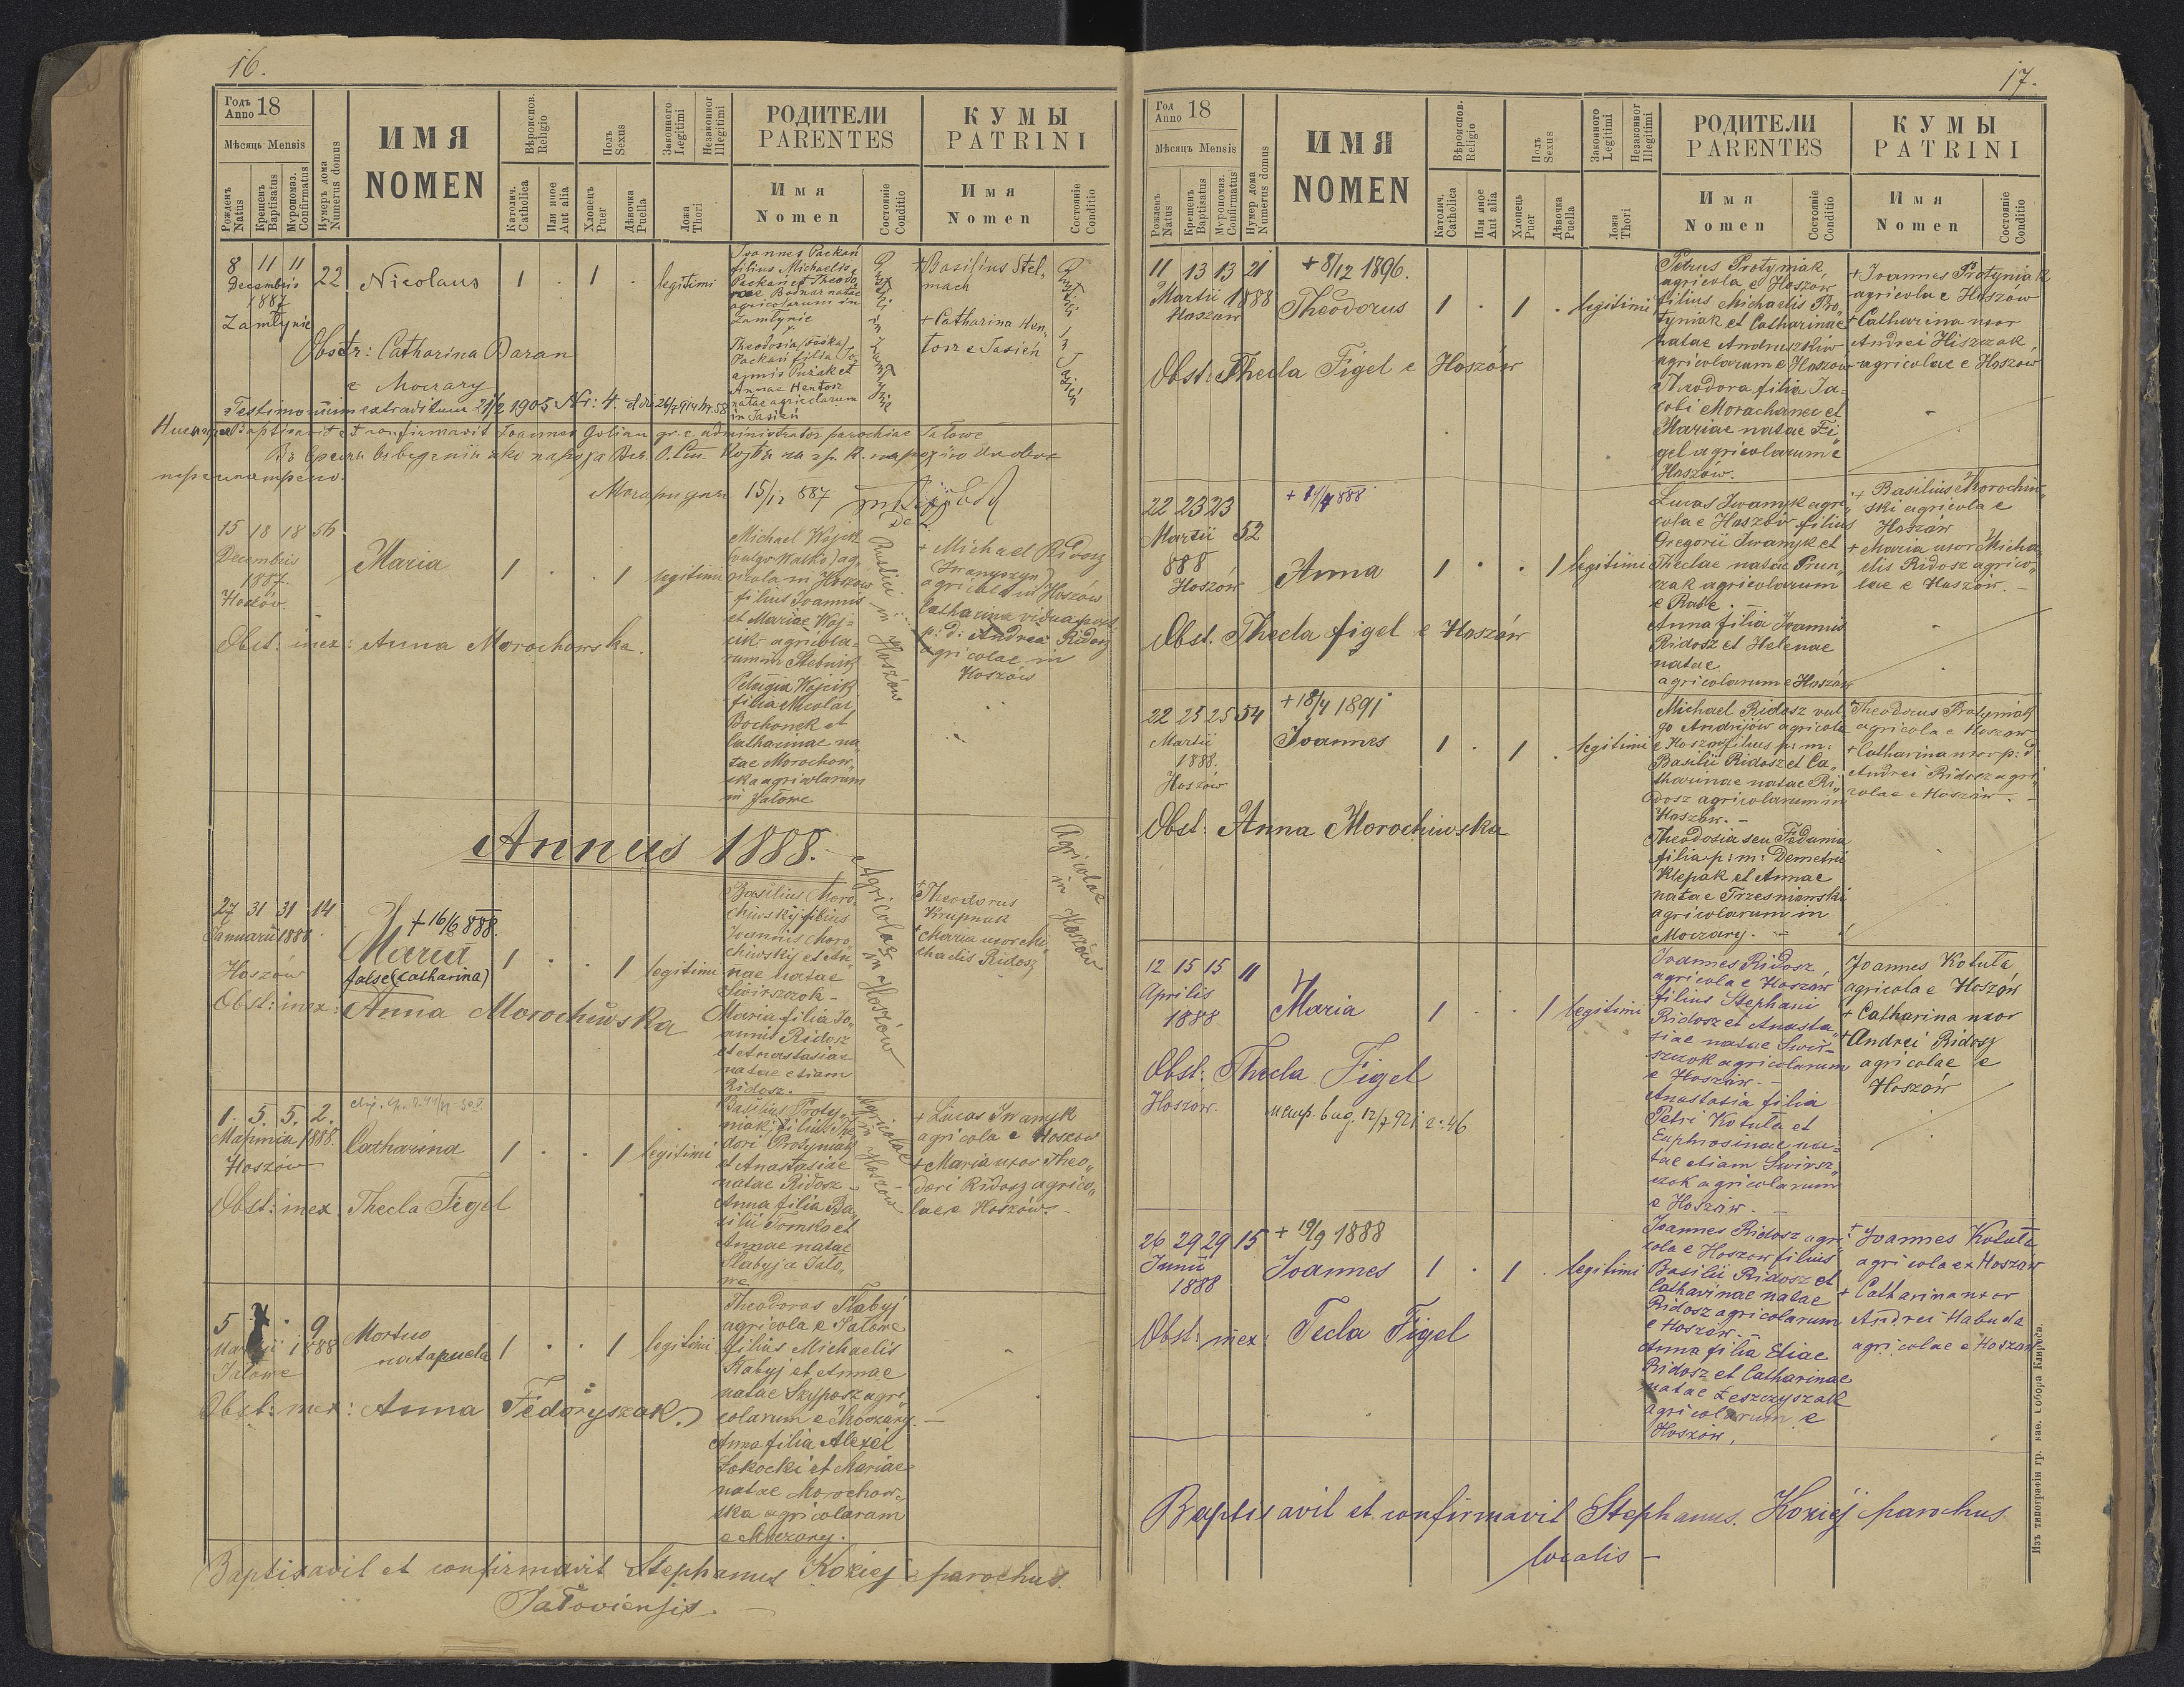 16.
Годъ
Anno 18
Мѣсяць Mensis
Рожденъ
Natus
Крещенъ
Baptisatus
Мѵропомаз.
Confirmatus
Нумеръ дома
Numerus domus
ИМЯ
NOMEN
Вѣроиспов.
Religio
Католич.
Catholica
Или иное
Aut alia
Полъ
Sexus
Хлопець
Puer
Дѣвочка
Puella
Законного
Legitimi
Незаконног
Illegitimi
Ложа
Thori
РОДИТЕЛИ
PARENTES
Имя
Nomen
Состояніе
Conditio
КУМЫ
PATRINI
Имя
Nomen
Состояніе
Conditio
8 11 11 22
Decembris
1887
Zamłynie
Nicolaus
1 . 1 . legitimi
Joannes Packan
filius Michaelis
Packan et Theodo
rae Bodnar natae
agricolarum in
Zamłynie
Theodosia (Feśka)
Packan filia Jo
annis Pużek et
Annae Hentosz
natae agricolarum
in Jasień
Rustici in Zamłynie
+ Basilius Stel„
mach
+ Catharina Hen„
tosz e Jasień
Rustici in Jasień
Obstr: Catharina Baran
e Moczary
Testimonium extraditum 21/2 1905 Nr: 4.
Baptisavit et confirmavit Joannes Golian gr. c. administrator parochiae Jałowe
15/12 887
15 18 18 56
Decembris
1887.
Hoszów
Maria
1 . . 1 legitimi
Michael Wójcik
(vulgo Walko) ag„
ricola in Hoszow
filius Joannis
et Mariae Wój=
cik agricola=
rum in Stebnik
Pelagia Wojcik
filia Nicolai
Bochonek et
Catharinae na„
tae Morochow„
ska agricolarum
in Jałowe
Rustici in Hoszów
+ Michael Ridosz
agricola in Hoszów
Catharina vidua post
p: d: Andrea Ridosz
agricolae in
Hoszów
Obst: inex: Anna Morochowska.
Annus 1888.
27 31 31 14
Januarii 1888
Hoszów
+ 16/6 888.
Maria
false (Catharina)
1 . . 1 legitimi
Basilius Moro„
chiwskij filius
Joannis Moro„
chiwskij et An„
nae natae
Swirszczok -
Maria filia Jo„
annis Ridosz
et Anastasiae
natae etiam
Ridosz.
Agricolae in Hoszów
+ Theodorus
Krupnak
+ Maria uxor Mi„
chaelis Ridosz
Agricolae in Hoszów
Obst: inex: Anna Morochiwska
1. 5. 5. 2.
1888.
Hoszów
Catharina
1 . . 1 legitimi
Basilius Proty„
niak filius The„
dori Protyniak
et Anastasiae
natae Ridosz -
Anna filia Ba„
silii Tomko et
Annae natae
Slabyj a Jało„
we
Agricolae in Hoszów
+ Lucas Iwanyk
agricola e Hoszow
+ Maria uxor Theo„
dori Ridosz agrico„
lae e Hoszów. -
Obst: inex. Thecla Figel
5 . 9
1888
Jalowe
Mortuo
nata puella
1 . . 1 legitimi
Theodorus Slabyj
agricola e Jałowe
filius Michaelis
Slabyj et Annae
natae Skyposz agri„
colarum e Moczary. -
Anna filia Alexei
Sokocki et Mariae
natae Morochow„
ska agricolarum
e Moczary.
Obst: inex: Anna Fedoryszak.
Baptisavit et confirmavit Stephanus Koziej parochus
Jałoviensis. -
17.
Год
Anno 18
Мѣсяцъ Mensis
Рожденъ
Natus
Крещенъ
Baptisatus
Мѵропомаз.
Confirmatus
Нумер дома
Numerus domus
ИМЯ
NOMEN
Вѣроиспов.
Religio
Католич.
Catholica
Или иное
Aut alia
Полъ
Sexus
Хлопець
Puer
Дѣвочка
Puella
Законного
Legitimi
Незаконног
Illegitimi
Ложа
Thori
РОДИТЕЛИ
PARENTES
Имя
Nomen
Состояніе
Conditio
КУМЫ
PATRINI
Имя
Nomen
Состояніе
Conditio
11 13 13 21
Martii 1888
Hoszów
+ 8/12 1896.
Theodorus
1 . 1 . legitimi
Petrus Protyniak,
agricola e Hoszow
filius Michaelis Pro„
tyniak et Catharinae
natae Andruszkiw
agricolarum e Hoszów
Theodora filia Ja„
cobi Morochanec et
Mariae natae Fi„
gel agricolarum e
Hoszów.
+ Joannes Protyniak
agricola e Hoszów
+ Catharina uxor
Andrei Hiszczak,
agricolae e Hoszow
Obst: Thecla Figel e Hoszów
22 23 23 52
Martii
888
Hoszów
Anna
1 . . 1 legitimi
Lucas Iwanyk agri„
cola e Hoszów filius
Gregorii Iwanyk et
Theclae natae Prun„
czak agricolarum
e Rabe. -
Anna filia Joannis
Ridosz et Helenae
natae
agricolarum e Hoszów
+ Basilius Morochiw„
ski agricola e
Hoszów
+ Maria uxor Micha„
elis Ridosz agrico„
lae e Hoszów. -
Obst. Thecla Figel e Hoszów
22 25 25 54
Martii
1888.
Hoszów
+ 18/4 1891
Joannes
1 . 1 . legitimi
Michael Ridosz vul„
go Andrijów agricola
e Hoszow filius p: m:
Basilii Ridosz et Ca„
tharinae natae Ri„
dosz agricolarum in
Hoszów. -
Theodosia seu Fedunia
filia p: m: Demetrii
Klepak et Annae
natae Trzesniowski
agricolarum in
Moczary. -
+ Theodorus Protyniak
agricola e Hoszow
+ Catharina uxor p: d
Andrei Ridosz agri„
colae e Hoszów. -
Obst: Anna Morochiwska
12 15 15 11
Aprilis
1888
Maria
1 . . 1 legitimi
Joannes Ridosz,
agricola e Hoszów
filius Stephani
Ridosz et Anasta„
siae natae Swir-
szczok agricolarum
e Hoszów. -
Anastasia filia
Petri Kotuła et
Euphrosinae na=
tae etiam Swirsz„
czok agricolarum
e Hoszów. -
Joannes Kotuła
agricola e Hoszów
+ Catharina uxor
+ Andrei Ridosz
agricolae e
Hoszów
Obst: Thecla Figel
Hoszów.
26 29 29 15
Junii
1888
+ 19/9 1888
Joannes
1 . 1 . legitimi
Joannes Ridosz agri„
cola e Hoszow filius
Basilii Ridosz et
Catharinae natae
Ridosz agricolarum
e Hoszów. -
Anna filia Eliae
Ridosz et Catharinae
natae Leszczyszak
agricolarum e
Hoszów.
+ Joannes Kotuła
agricola ex Hoszów
+ Catharina uxor
Andrei Habuda
agricolae e Hoszów
Obst: inex: Tecla Figel
Baptisavit et confirmavit Stephanus Koziej parochus
localis -